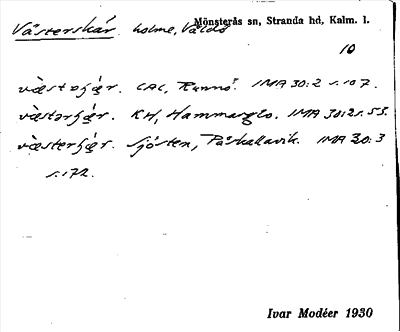 Västerskär holme, Våldö Mönsterås sn, Stranda hd, Kalm. l.
10
CAC, Runnö. IMA 30:2 s. 107.
KH, Hammarglo. IMA 30:2 s. 53.
Sjösten, Påskallavik. IMA 30:3
s. 172.
Ivar Modéer 1930